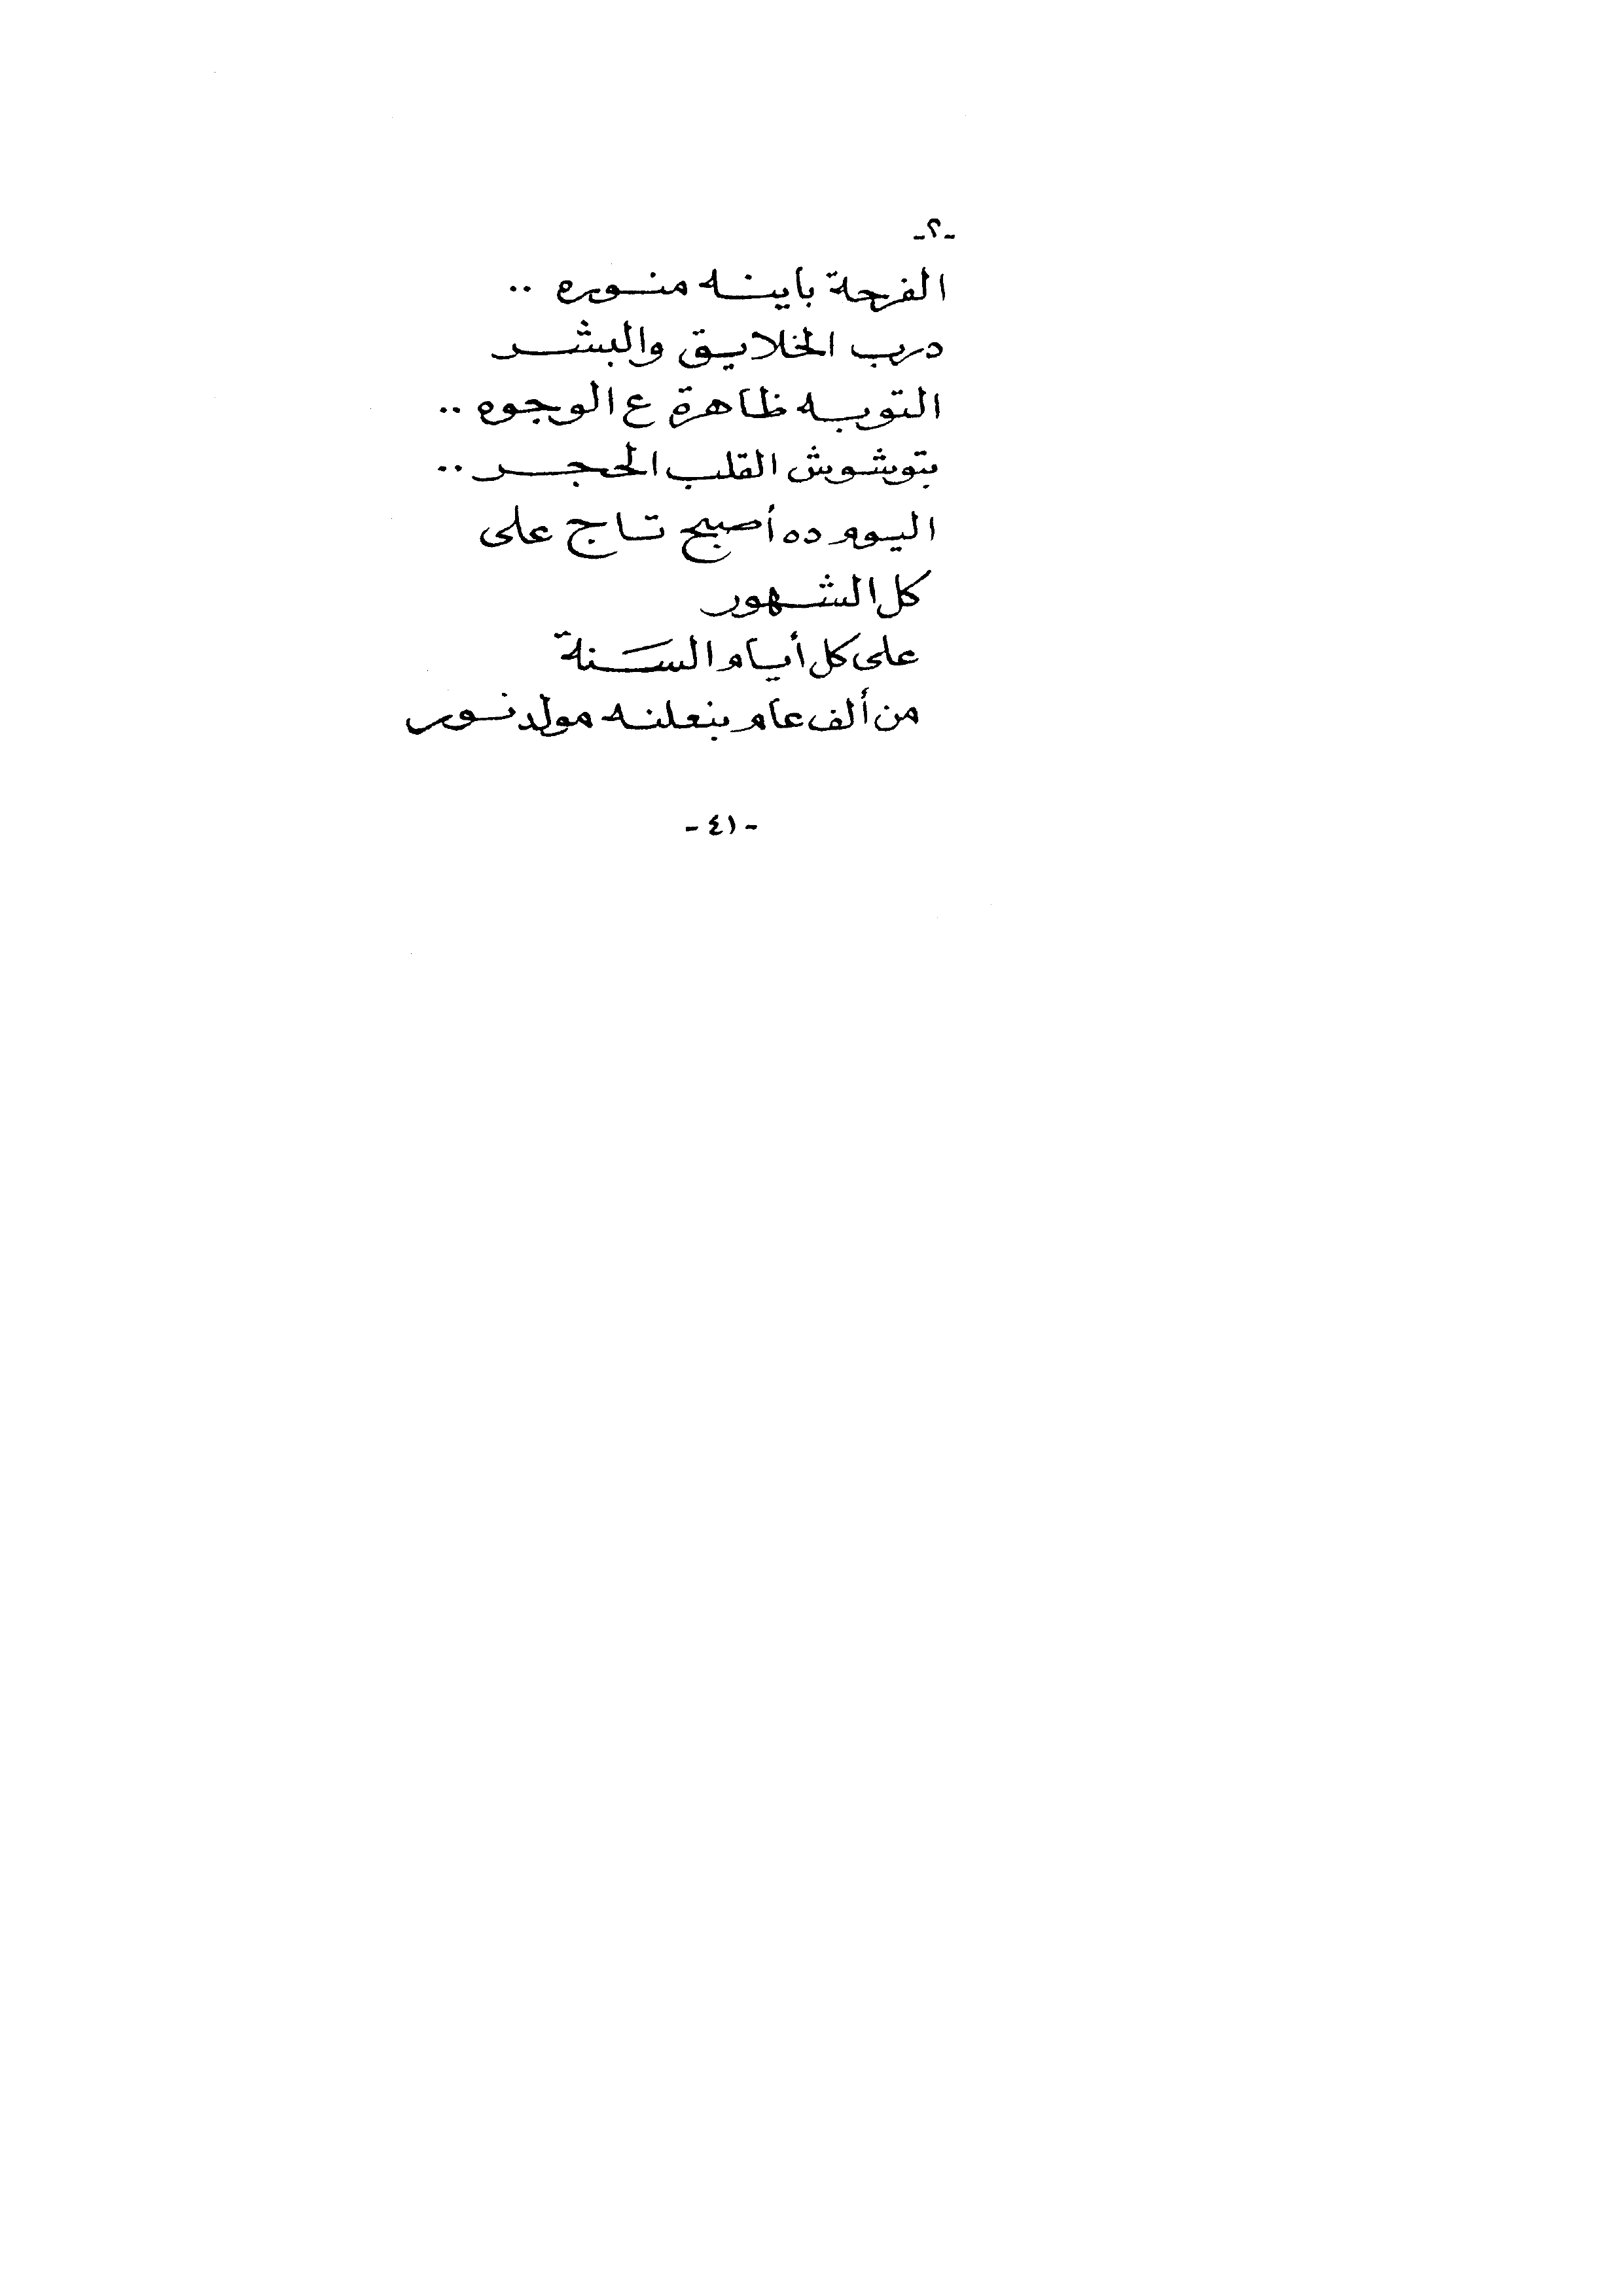 -٢-
الفرحة باينه منوره ..
درب الخلايق والبشر
التوبه ظاهرة ع الوجوه ..
بتوشوش القلب الحجر ..
اليوم ده أصبح تاج على
كل الشهور
على كل أيام السَنة
من ألف عام بنعلنه مولد نور
- ٤١ -